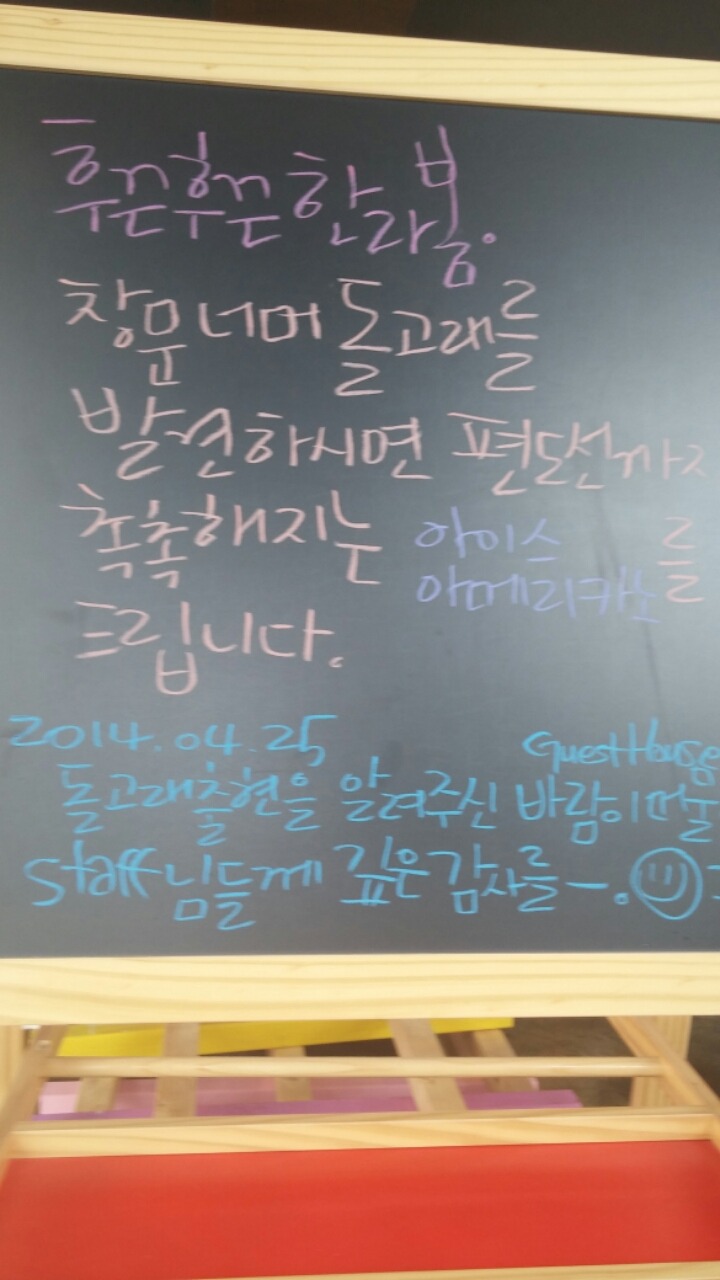 훈훈한라봄.
창문 너머 돌고래를
발견하시면 편도선까지
촉촉해지는 아이스 아메리카노 를
드립니다.
2014.04.25 GuestHouse
돌고래출현을 알려주신 바람이머물
staff님들께 깊은감사를ㅡ.